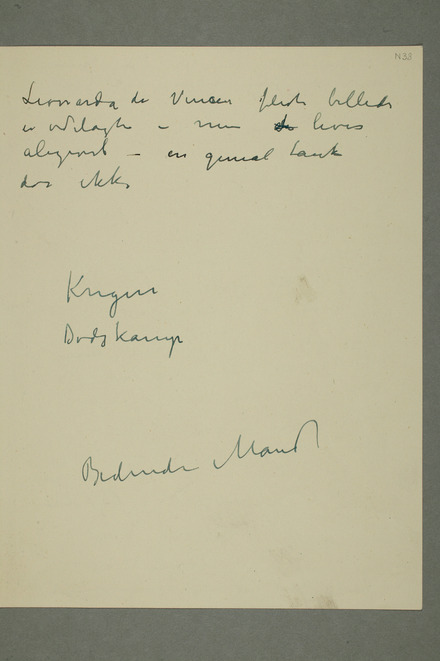 N 33
Leonarda da Vincis fleste billeder
er ødelagte – men de leves
alegevel – en genial tanke
dør ikke
Krigen
Dødskamp
Bedende Mand